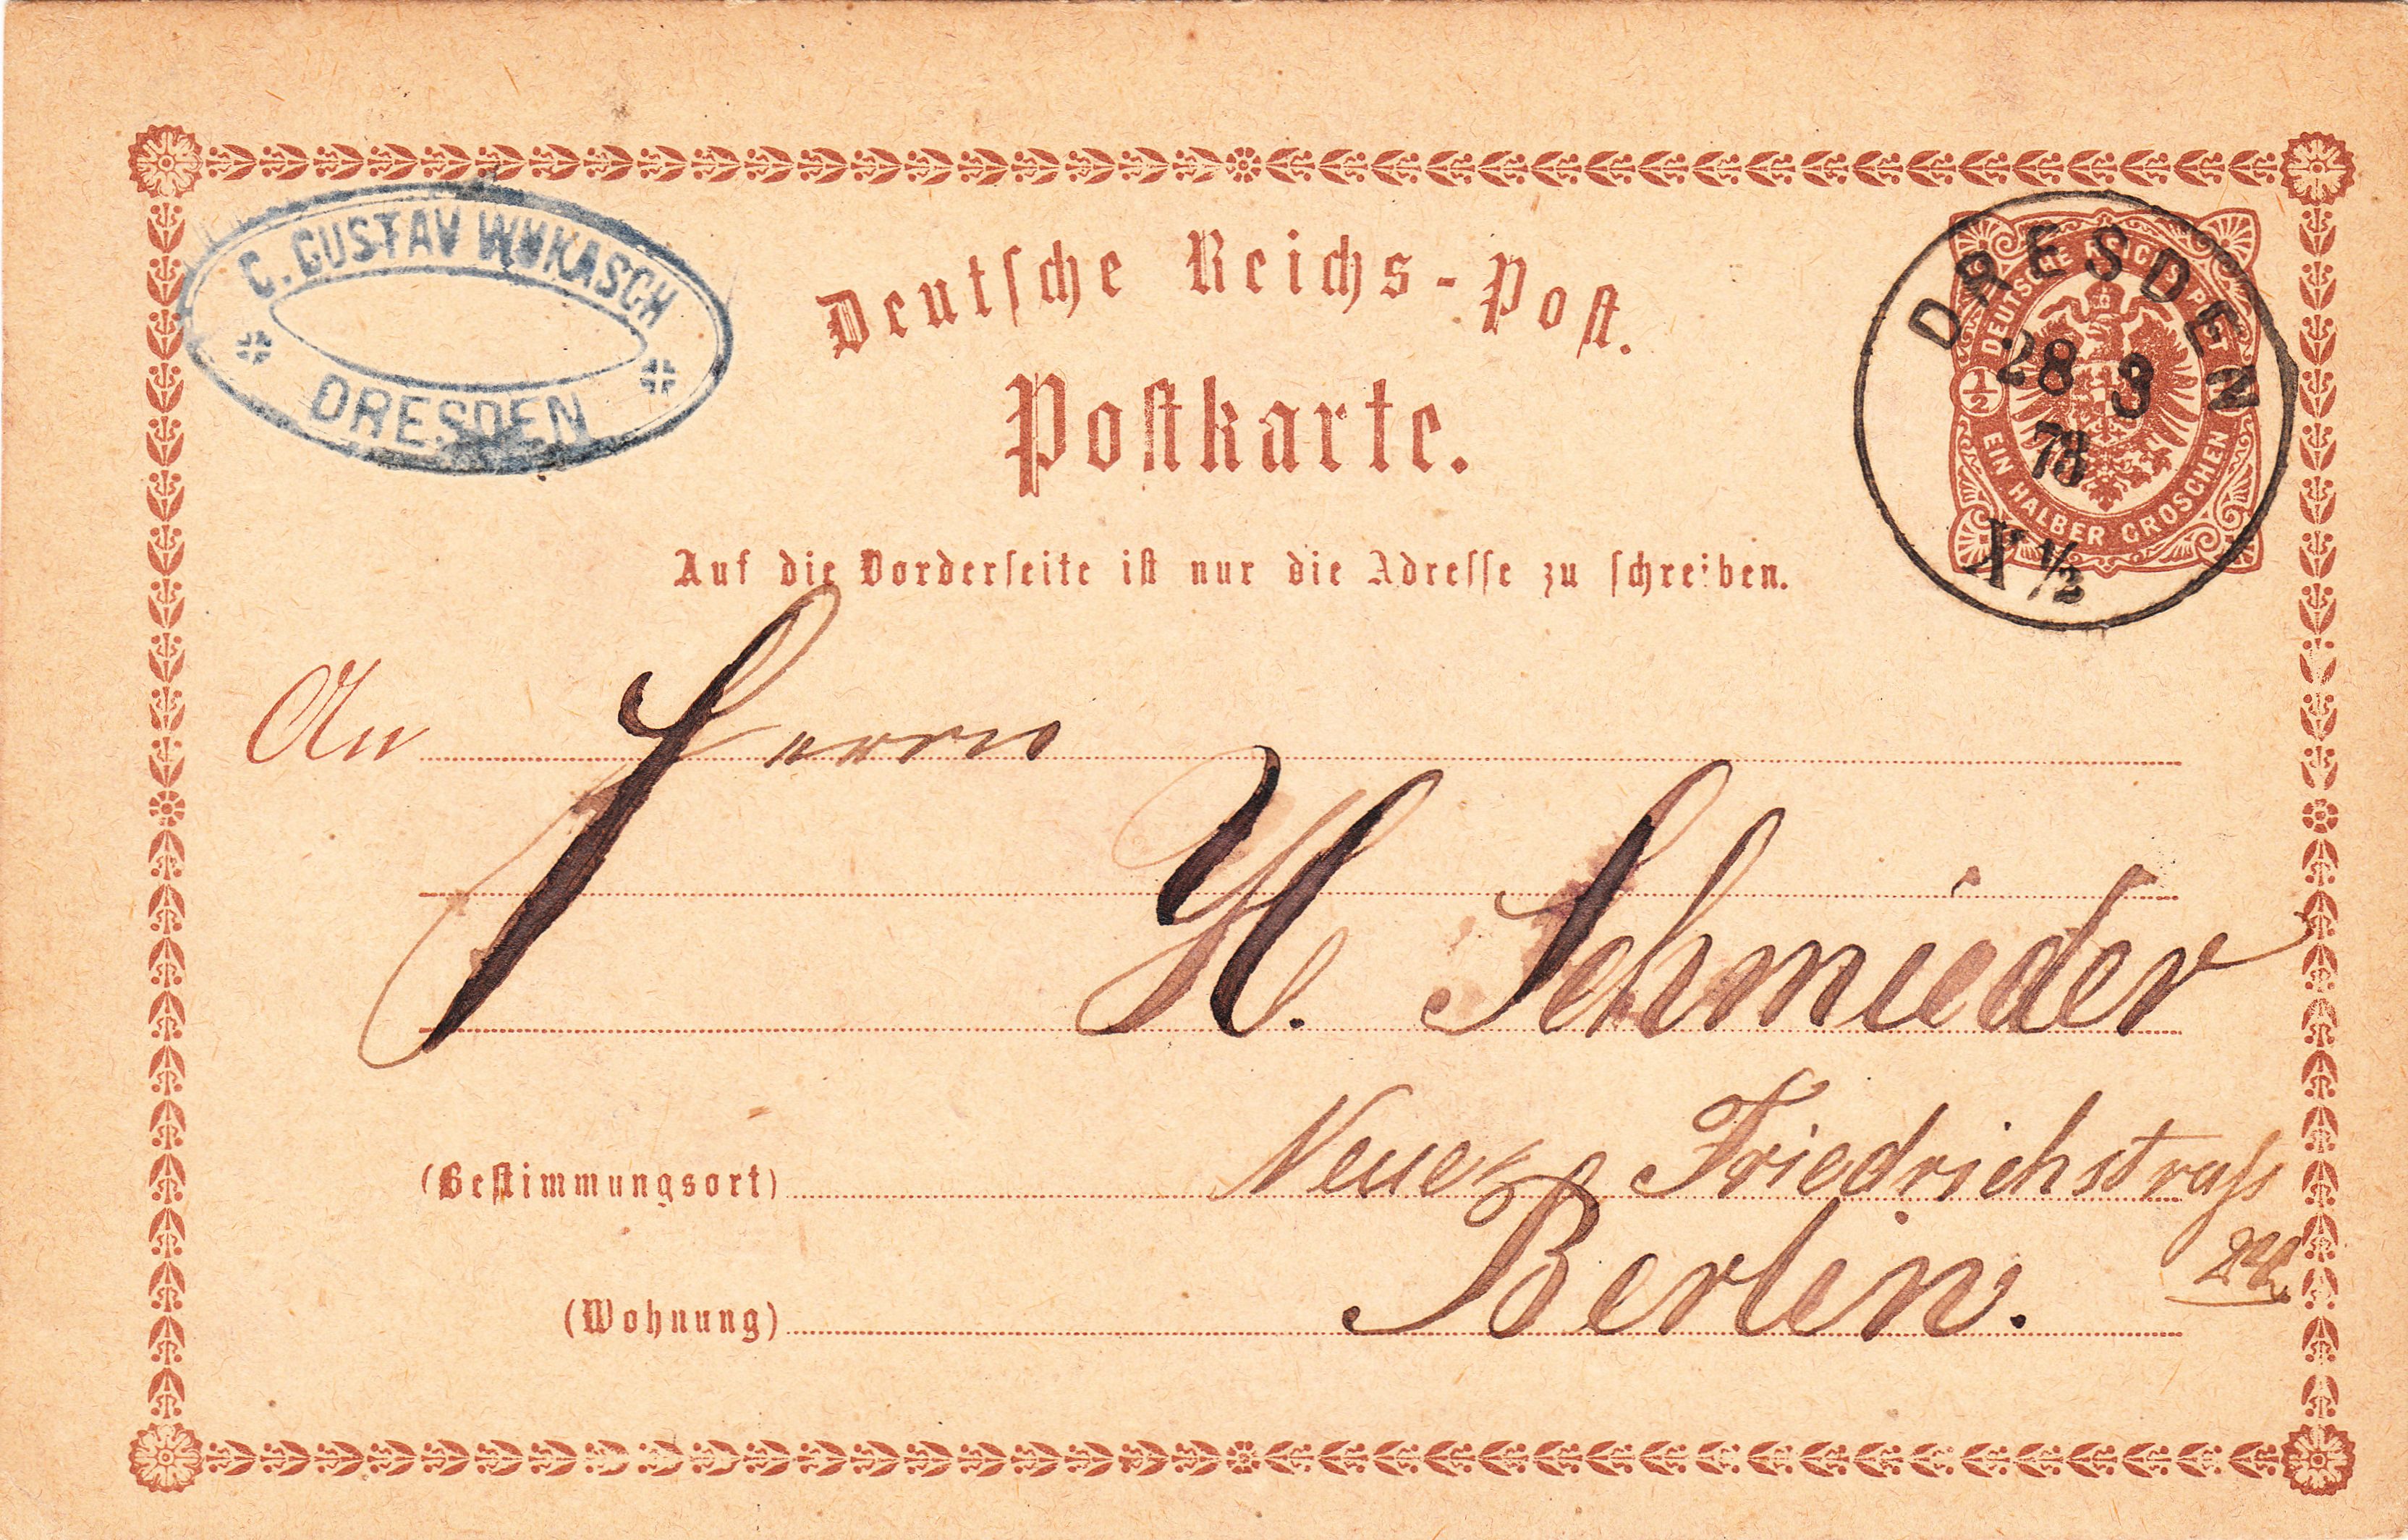 C. GUSTAV WUKASCH
DRESDEN
Deutsche Reichs-Post.
Postkarte.
Auf die Vorderseite ist nur die Adresse zu schreiben.
DEUTSCHE REICHS POST
1/2
EIN HALBER GROSCHEN
DRESDEN
28 3
X 1/2
An Herrn
H. Schmieder
(Bestimmungsort) Neue Friedrichstrass
(Wohnung) Berlin.